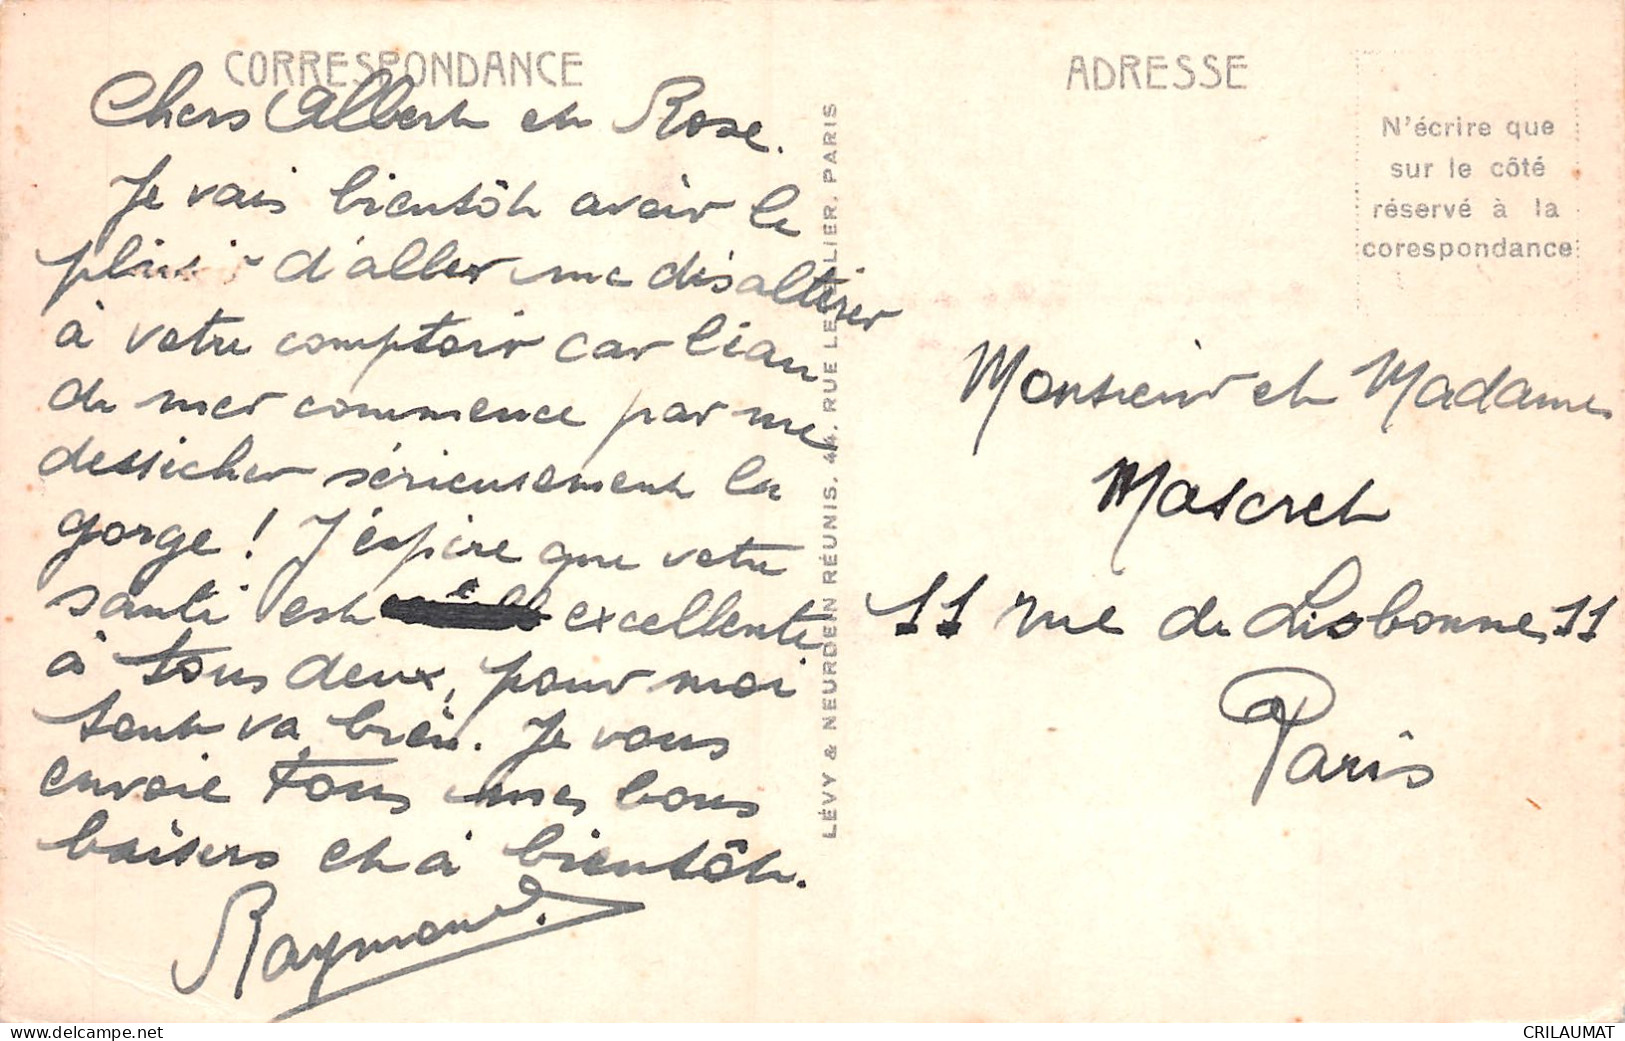 CORRESPONDANCE
Chers Albert et Rose.
Je vais bientôt avoir le
plaisir d'aller me désaltérer
à votre comptoir car l'eau
de mer commence par me
dessècher sérieusement la
gorge ! J'éspère que votre
santé est excellente
à tous deux, pour moi
tout va bien. Je vous
envoie tous mes bons
baisers et à bientôt.
Raymond.
LÉVY & NEURDEIN RÉUNIS, 44, RUE LETELLIER, PARIS
ADRESSE
N'écrire que
sur le côté
réservé à la
corespondance
Monsieur et Madame
Mascret
11 rue de Lisbonne 11
Paris
www.delcampe.net
CRILAUMAT